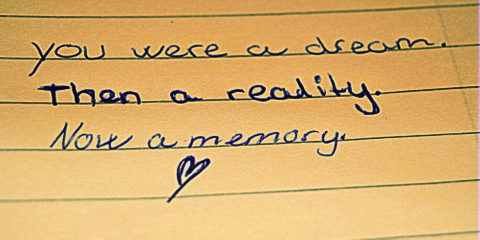 you were a dream.
Then a reality.
Now a memory.